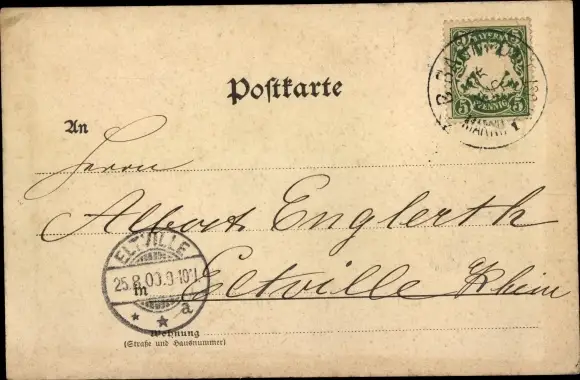 BAYERN
5 5
PFENNIG
Postkarte
An
Herrn
Albert Englerth
ELTVILLE
25.8.00.9-10V.
in Eltville a/Rhein
a
Wohnung
(Straße und Hausnummer)